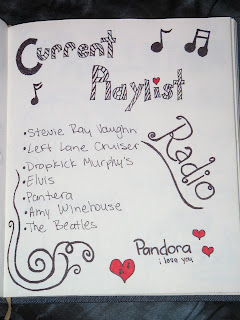 Current
Playlist
•Stevie Ray Vaughn
•Left Lane Cruiser
•Dropkick Murphy's
•Elvis
•Pantera
•Amy Winehouse
•The Beatles
Radio
Pandora
i love you